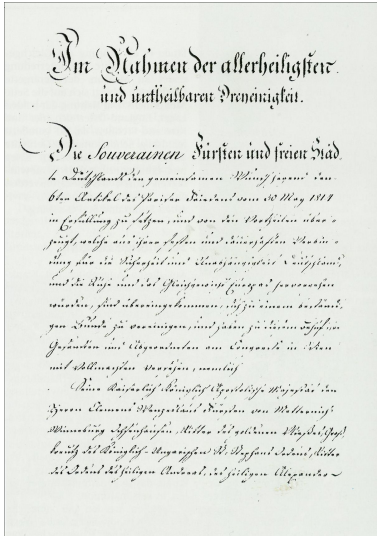 Im Nahmen der allerheiligsten
und untheilbaren Dreyeinigkeit.
Die Souverainen Fürsten und freien Städ„
te Deutschlands den gemeinsamen Wunsch hegend den
6ten Artikel des Pariser Friedens vom 30 May 1814
in Erfüllung zu setzen, und von den Vortheilen über„
zeugt, welche aus ihrer festen und dauerhaften Verbin„
dung für die Sicherheit und Unabhängigkeit Deutschlands,
und die Ruhe und das Gleichgewicht Europas hervorgehen
würden, sind übereingekommen, sich zu einem beständi„
gen Bunde zu vereinigen, und haben zu diesem Behuf ihre
Gesandten und Abgeordneten am Congresse in Wien
mit Vollmachten versehen, nemlich
Seine Kaiserlich Königlich Apostolische Majestät den
Herrn Clemens Wenzeslaus Fürsten von Metternich
Winneburg Ochsenhausen, Ritter des goldenen Vließes, Groß„
kreutz des Königlich-Ungrischen St. Stephans Ordens, Ritter
des Ordens des heiligen Andreas, des heiligen Alexander